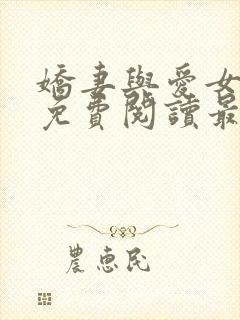 嬌妻與愛女
免費閱讀最
農惠民